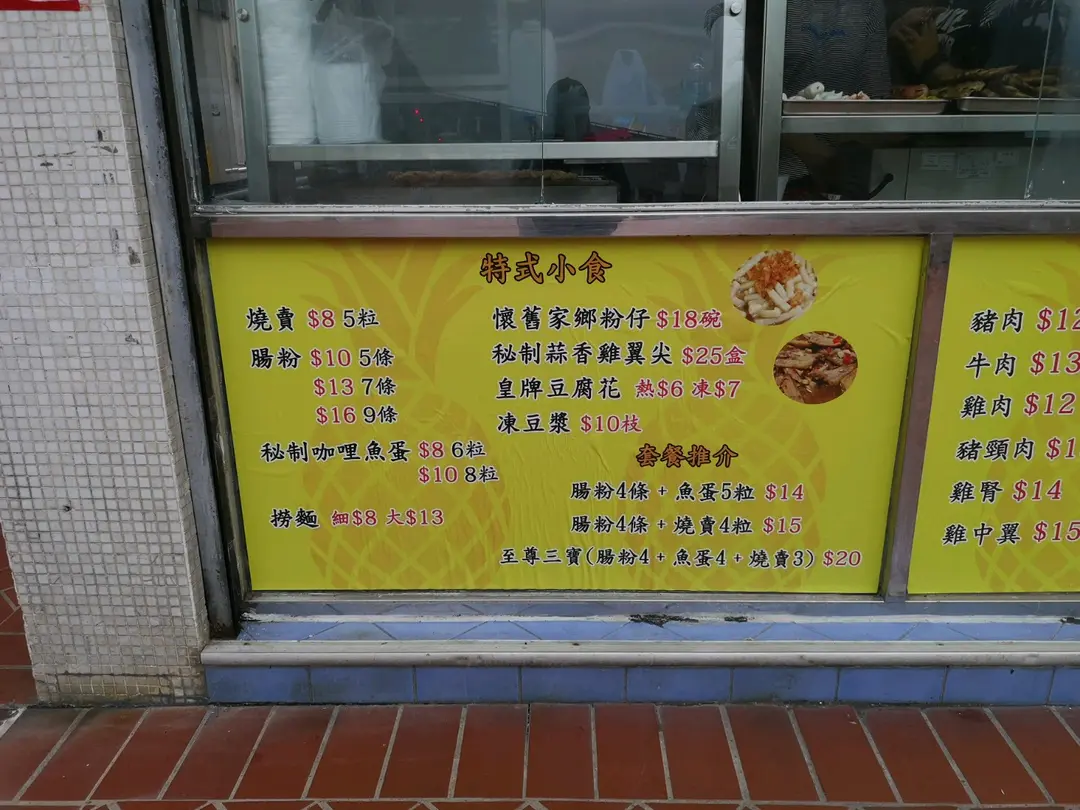 特式小食
燒賣 $8 5粒
腸粉 $10 5條
$13 7條
$16 9條
秘制咖哩魚蛋 $8 6粒
$10 8粒
撈麵 細$8 大$13
懷舊家鄉粉仔 $18碗
秘制蒜香雞翼尖 $25盒
皇牌豆腐花 熱$6 凍$7
凍豆漿 $10枝
套餐推介
腸粉4條 + 魚蛋5粒 $14
腸粉4條 + 燒賣4粒 $15
至尊三寶(腸粉4 + 魚蛋4 + 燒賣3) $20
豬肉
牛肉 $13
雞肉 $12
豬頸肉
雞腎 $14
雞中翼 $15